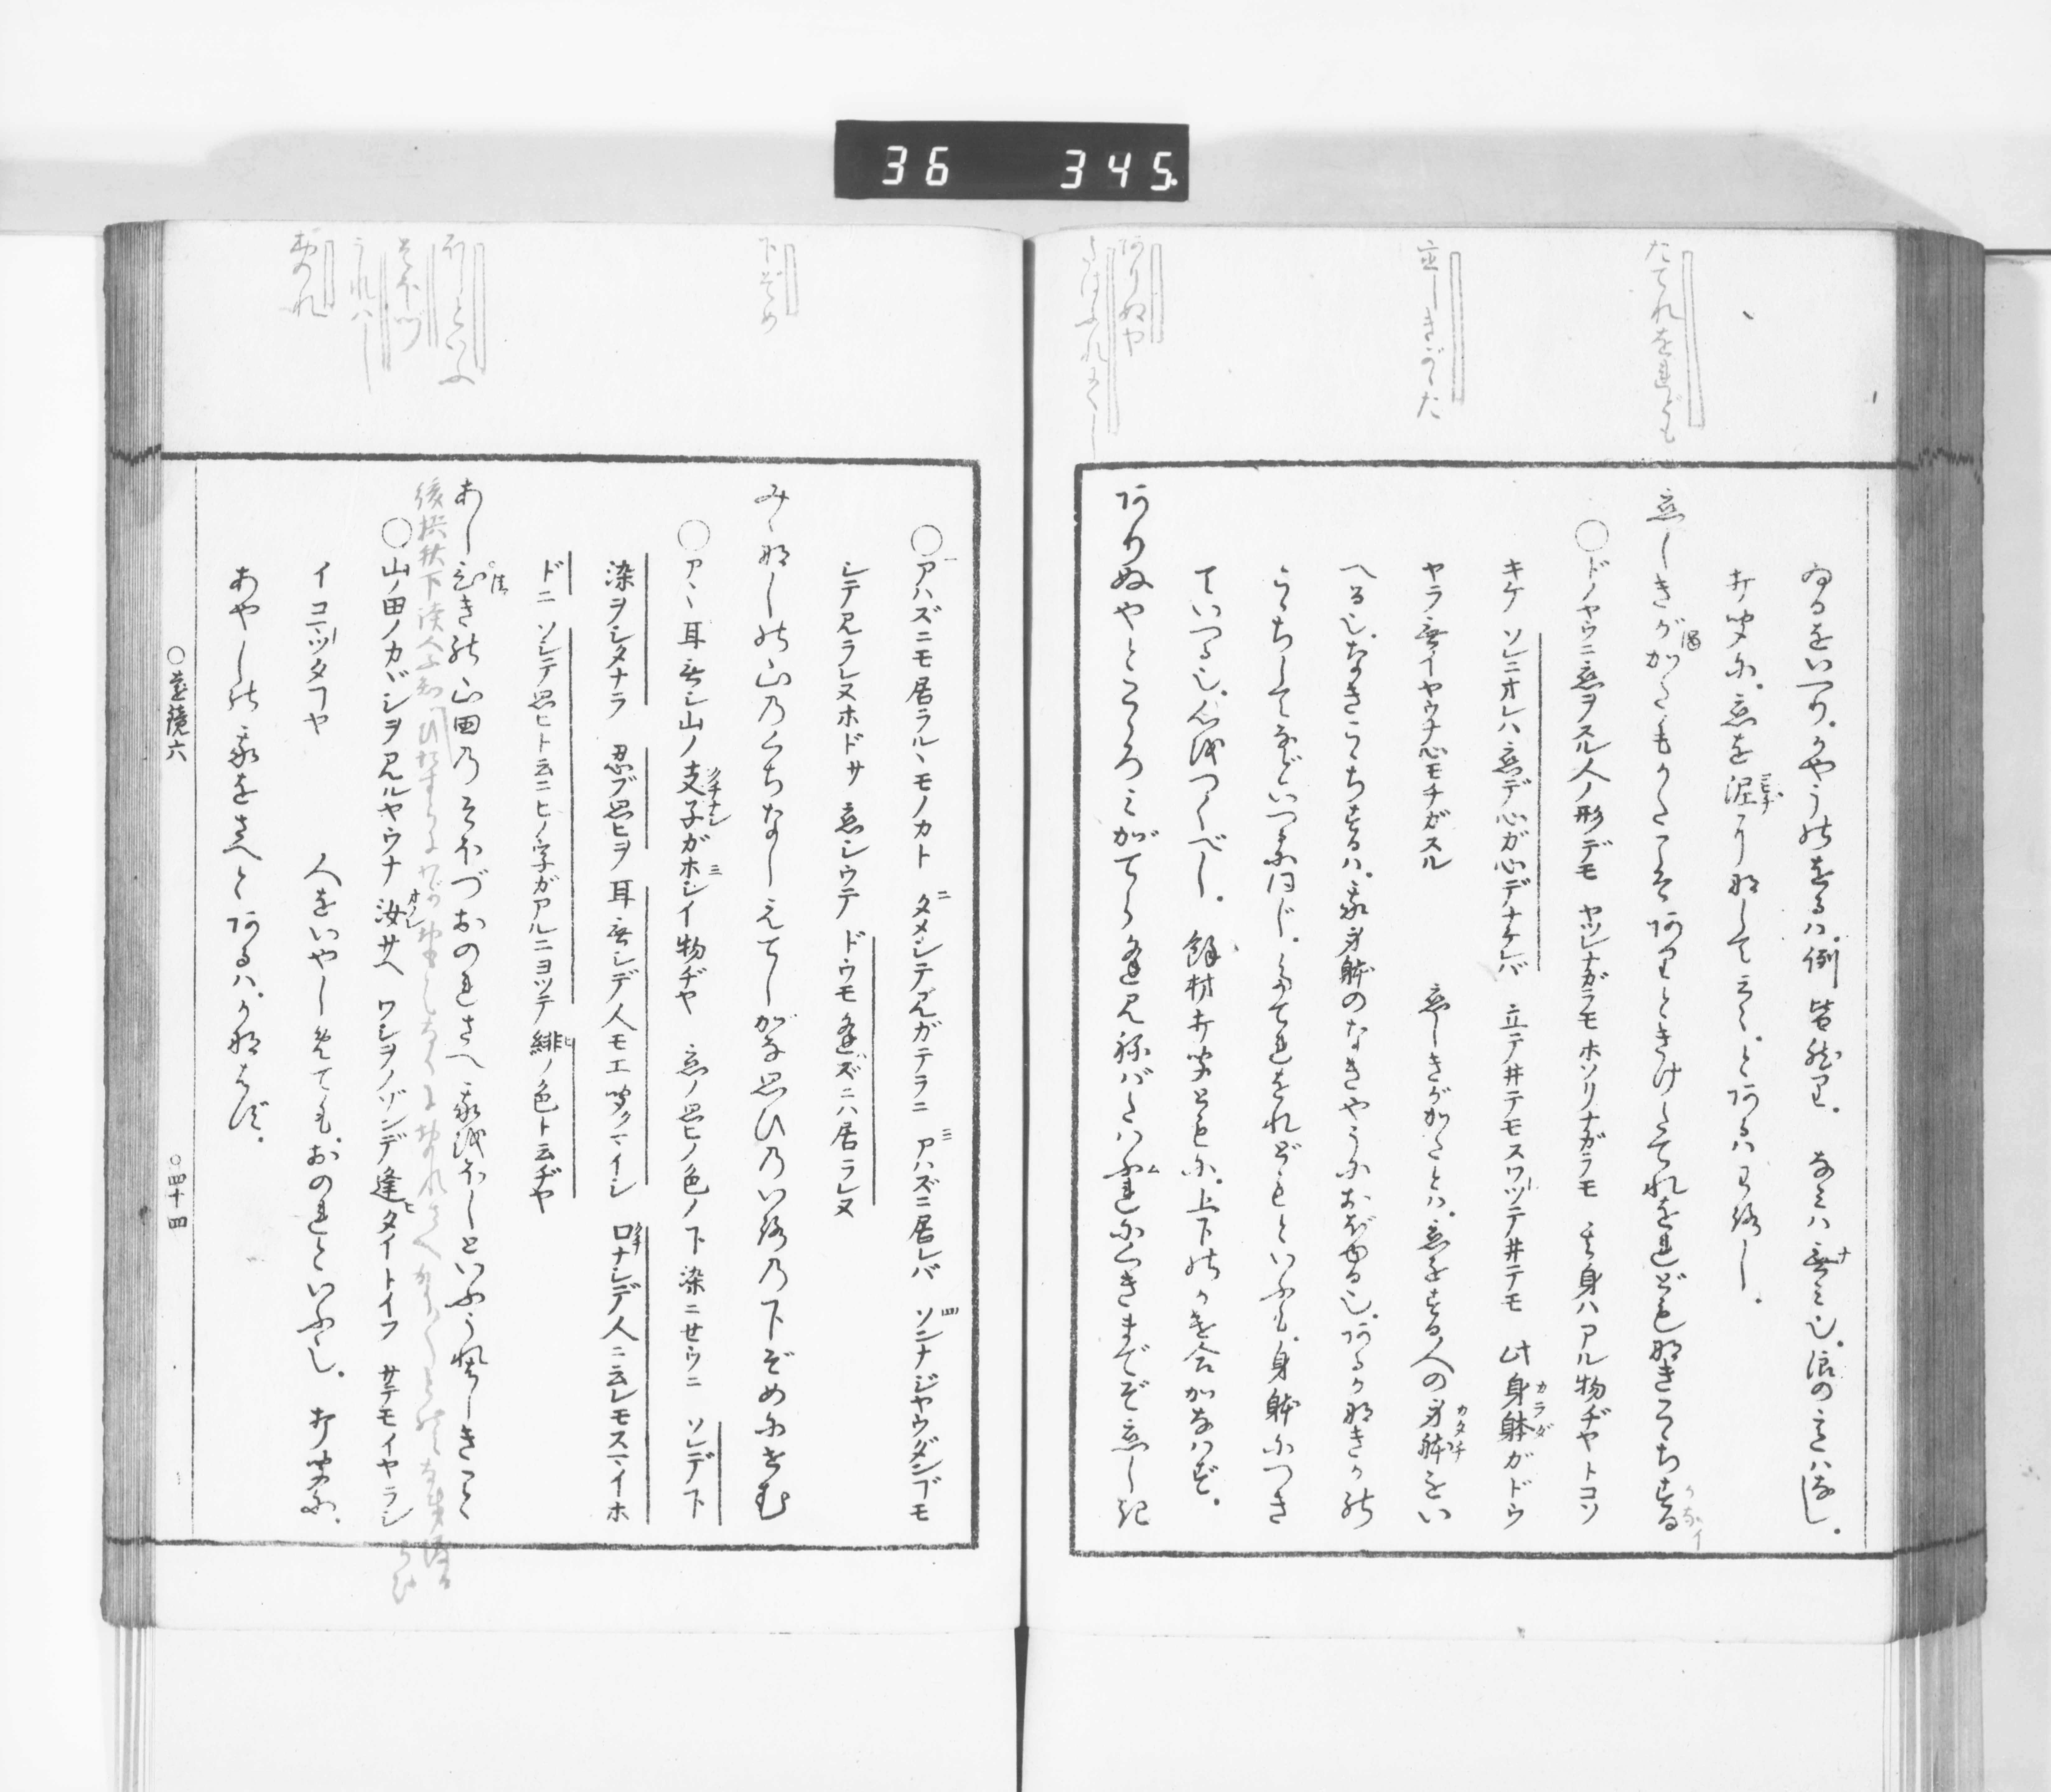 36 345
たてれをれども
恋しきがた
ありぬや
たはふれにくし
ゐるをいへり。かやうのをるは、例皆然り。なみは無み也。浪の意はなし。
打聞に、恋を泥りなして云々、とあるはわろし。
恋しきがかたもかたこそ有りときけたてれをれどもなきこゝちする
○ドノヤウニ恋ヲスル人ノ形デモ ヤツレナガラモ ホソリナガラモ 其身ハアル物ヂヤトコソ
キケ ソレニオレハ 恋デ心ガ心デナケレバ 立テ井テモスワツテ井テモ 此身躰ガドウ
ヤラ無イヤウナ心モチガスル 恋しきがかたとは、恋をする人の身躰をい
へる也。なきこゝちするは、我身躰のなきやうにおぼゆる也。あるかなきかの
こゝちしてなどいへるに同じ。たてれをれどもといふも、身躰につき
ていへる也。心をつくべし。餘材打聞ともに、上下のかけ合かなはず。
ありぬやとこゝろみがてらあひ見ねばたはふれにくきまでぞ恋しき
下ぞめ
ほしといふ
そほづ
うれハし
おのれ
○アハズニモ居ラルヽモノカト タメシテ見ガテラニ アハズニ居レバ ソンナジヤウダンゴモ
シテ見ラレヌホドサ 恋シウテ ドウモ逢ズニハ居ラレヌ
みゝなしの山のくちなしえてしがな思ひのいろの下ぞめにせむ
○アヽ耳無シ山ノ支子ガホシイ物ヂヤ 恋ノ思ヒノ色ノ下染ニセウニ ソレデ下
染ヲシタナラ 忍ブ思ヒヲ 耳無シデ人モエ聞クマイシ 口ナシデ人ニ云レモスマイホ
ドニ ソシテ思ヒト云ニヒノ字ガアルニヨツテ緋ノ色ト云ヂヤ
あし引きの山田のそほづおのれさへ我をほしといふうれはしきこと
○山ノ田ノカヾシヲ見ルヤウナ 汝サヘ ワシヲノゾンデ逢タイトイフ サテモイヤラシ
イコツタフヤ 人をいやしめても、おのれといふ也。打聞に、
あやしの我をさへとあるは、かなはず。
○遠鏡六 ○四十四